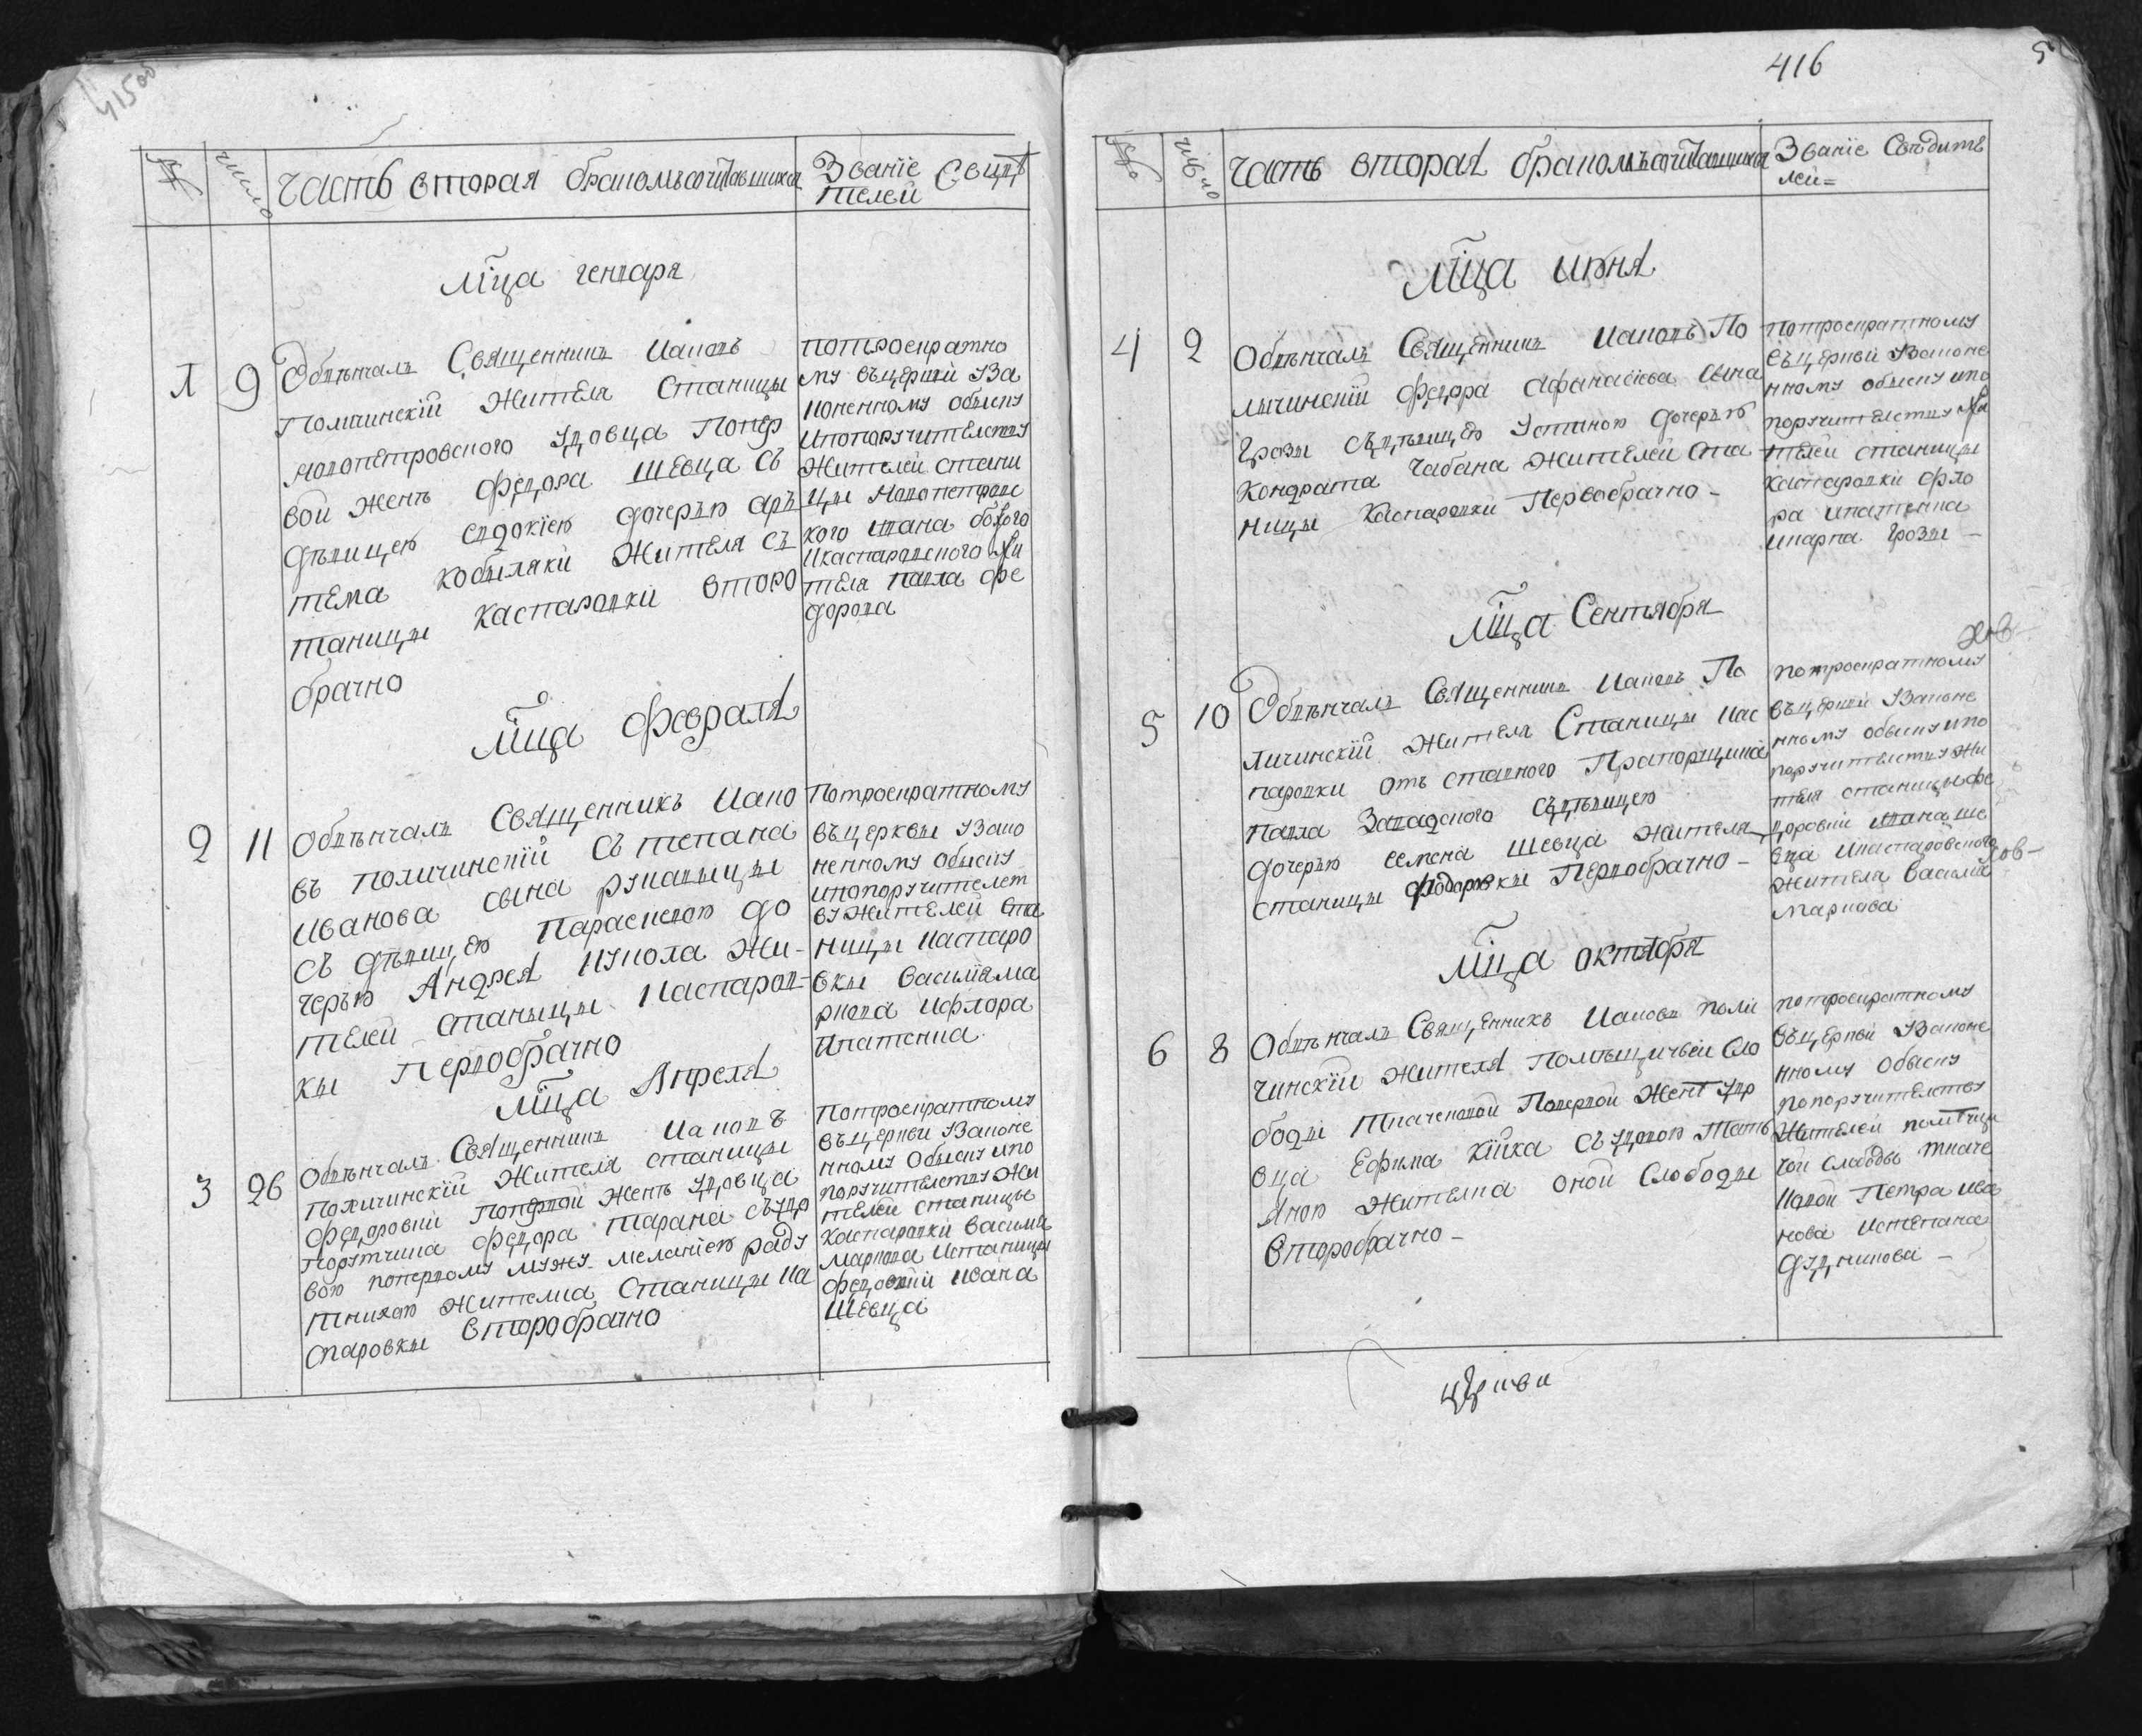 41500
№
число
часть вторая бракомъ сочитавшихся
Званїе Свидѣ
телей
Мца генваря
1 9
Обвѣнчалъ Священникъ Иаковъ
Поличинскїй Жителя Станицы
новопетровского удовца Попер
вой женѣ Федора Шевца съ
дѣвицею евдокїею дочерью арь
тема кобыляки Жителя съ
таницы каспаровки второ
брачно
потроекратно
му въцерквй Ува
коненному обыску
ипопоручителству
Жителей стани
цы Новопетровс
кого ивана
икаспаровского Жи
теля павла фе
дорова
Мца Февраля
2 11
Обвѣнчалъ Священникъ Иако
въ поличинскїй Степана
Иванова сына рукавыцы
съ дѣвицею Параскевою до
черью Андрея кукола Жи-
телей станыцы Каспаров-
кы Первобрачно
Потроекратному
въцерквы Узако
ненному обыску
ипопоручителст
ву Жителей Ста
ницы Каспаро
вкы Василїяма
ркова ифлора
Ипатенка
Мца Апреля
3 26
Обвѣнчалъ Священникъ Иаковъ
Поличинскїй Жителя станицы
Федоровки Поперьвой женѣ удовца
Порутчика Федора тарана съудо
вою поперьвому мужу меланїею раду
тниковою жителка Станицы ка
спаровкы второбрачно
Потроекратному
въцеркви Узаконе
нному Обыску ипо
поручителству Жи
телей станицы
Каспаровки Василия
маркова истаницы
федоровкй Ивана
Шевца
416
5
№
число
часть вторая бракомъ сочитавшихся
Званїе Свѣдите
лей=
Мца июня
4 2
Обвѣнчалъ Священникъ Иаковъ По
лычинскїй Федора Афанасїева сына
Грозы съдѣвицею Устиною дочерью
Кондрата Чабана жителей ста
ницы Каспаровки Первобрачно-
потроекратному
въцерквй Узаконе
нному обыску ипо
поручителству Жи
телей станицы
Каспаровки фло
ра ипатенка
имарка Грозы-
Мца Сентября
5 10
Обвѣнчалъ Священникъ Иаковъ По
личинскїй Жителя Станицы Кас
паровки отъ ставного Прапорщика
павла Западского съдѣвицею
дочерью семена шевца жителя
станицы Фодоровкы Первобрачно-
потроекратному
въцерквй Узаконе
нному обыску ипо
поручителству Жи
теля станицы фе
доровки ивана ше
вца икаспаровского
жителя Василия
Маркова
Мца октября
6 8
Обвѣнчалъ Священникъ Иаковъ Поли
чинскїй жителя Помѣщичьей Сло
боды Ткаченковой Поперьвой женѣ удо
вца Ефима Кїйка съудовою тать
яною жителка оной Слободы
Второбрачно-
потроекратному
въцерквй Узаконе
нному обыску
попоручителству
Жителей помещи
чой слабоды ткаче
нковой Петра ива
нова истепана
дудникова-
церкви